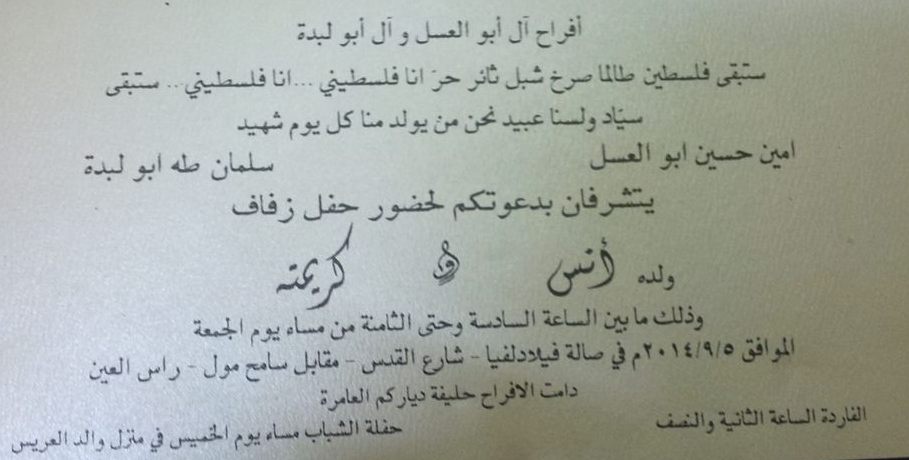 أفراح آل أبو العسل و آل أبو لبدة
ستبقى فلسطين طالما صرخ شبل ثائر حرّ انا فلسطيني ...انا فلسطيني.. ستبقى
سيّاد ولسنا عبيد نحن من يولد منا كل يوم شهيد
امين حسين ابو العسل سلمان طه ابو لبدة
يتشرفان بدعوتكم لحضور حفل زفاف
ولده أنس و كريمته
وذلك ما بين الساعة السادسة وحتى الثامنة من مساء يوم الجمعة
الموافق ٢٠١٤/٩/٥م في صالة فيلادلفيا - شارع القدس - مقابل سامح مول - راس العين
دامت الافراح حليفة دياركم العامرة
الفاردة الساعة الثانية والنصف حفلة الشباب مساء يوم الخميس في منزل والد العريس